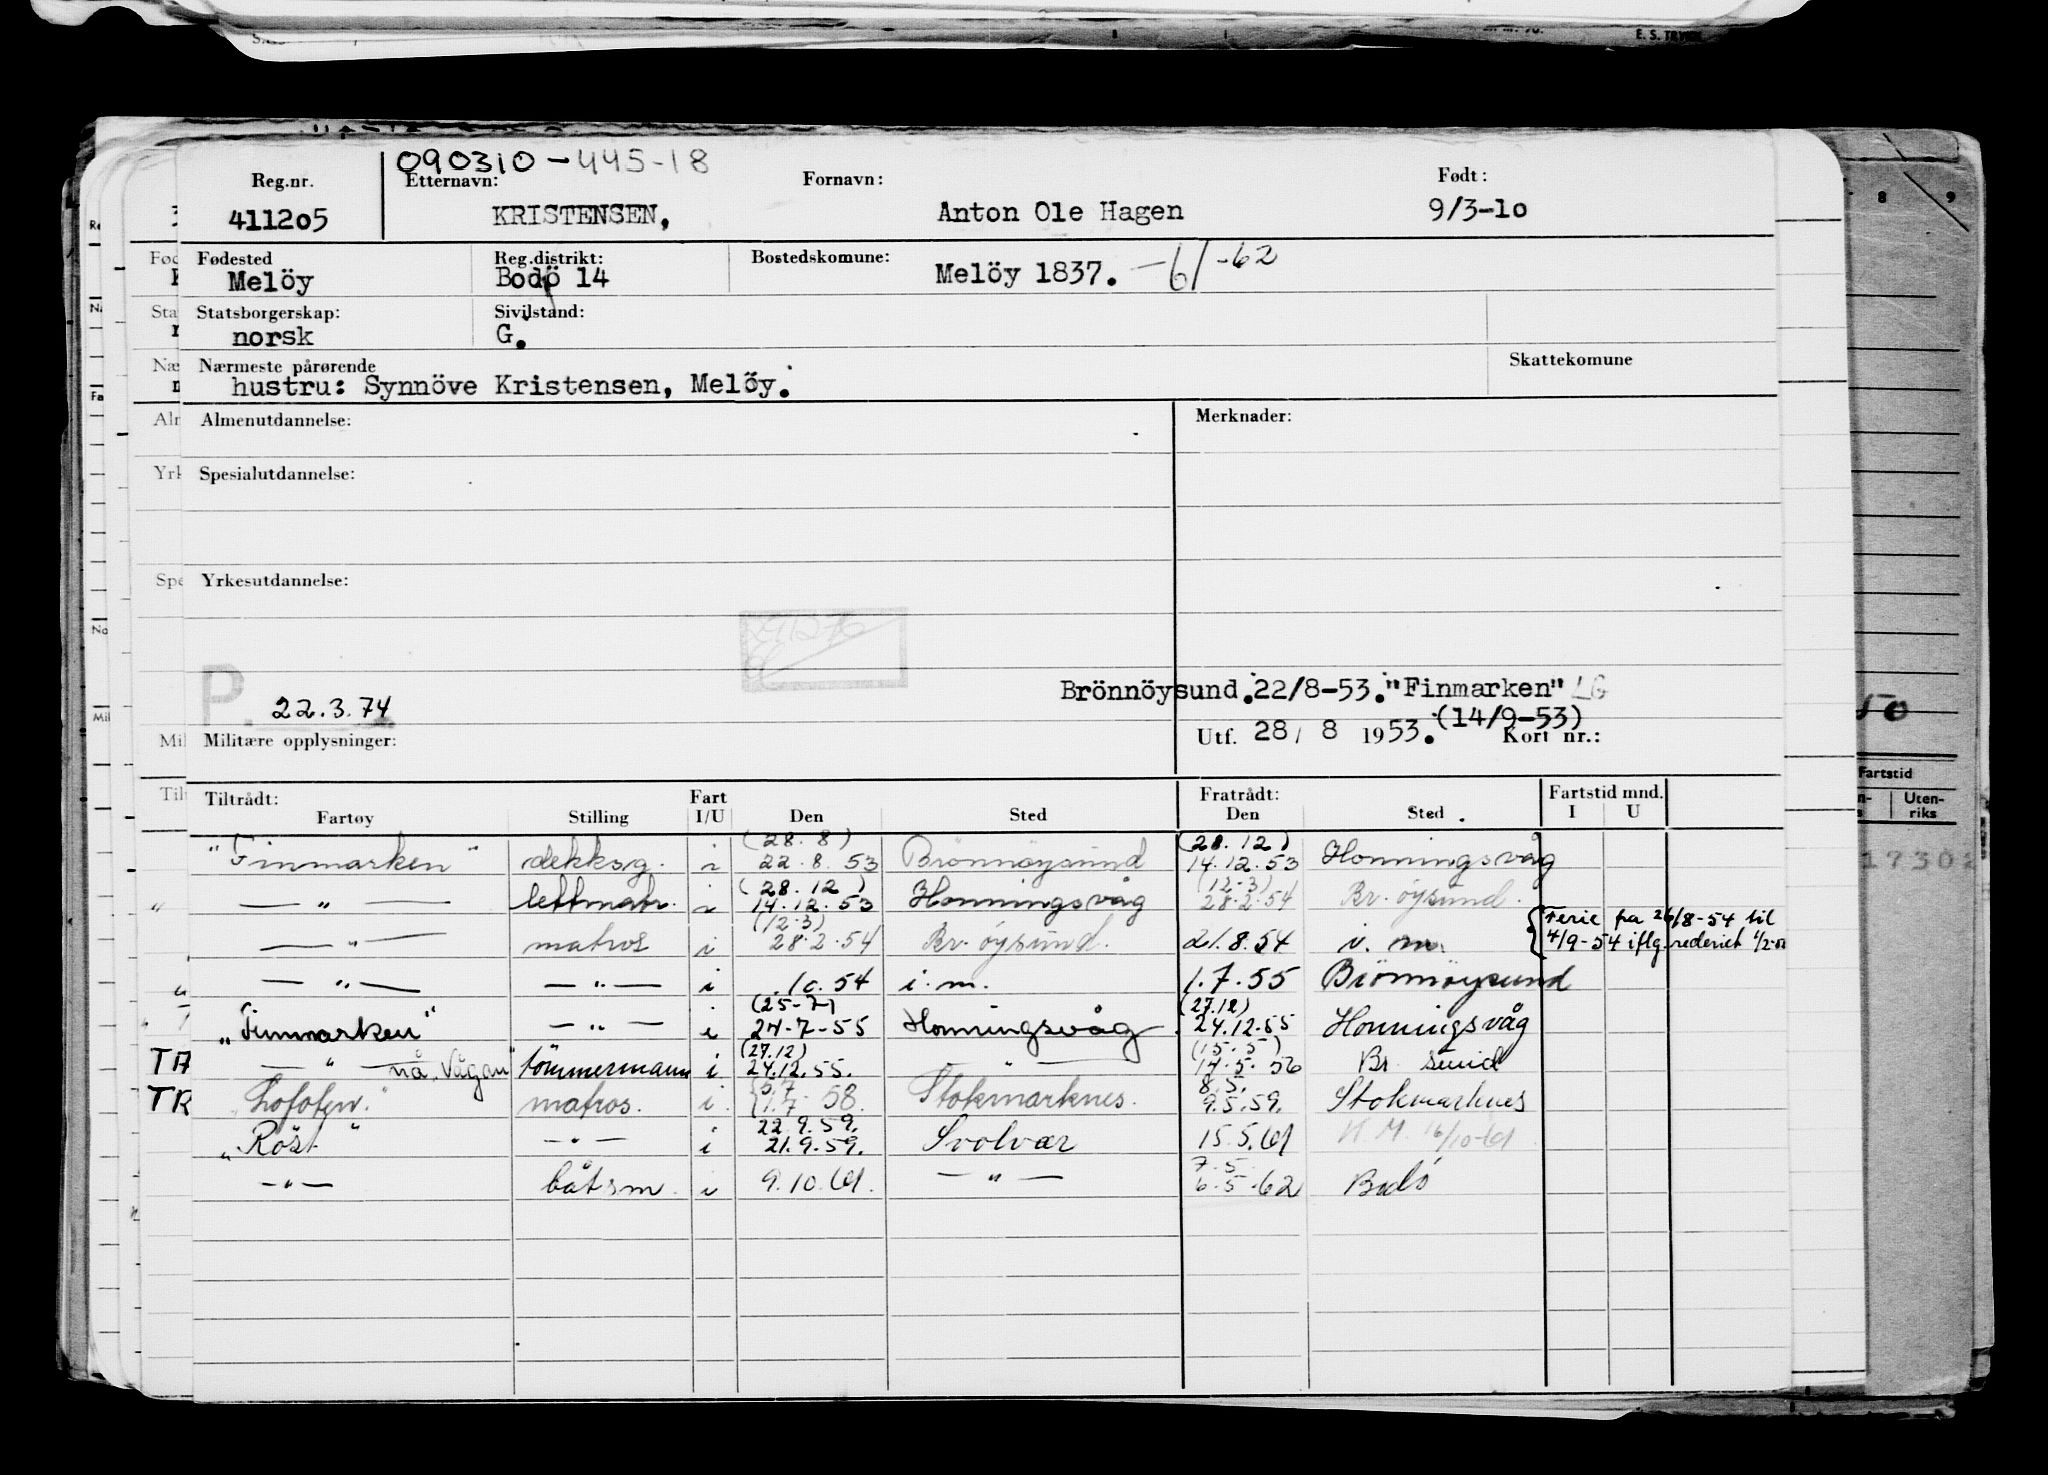 E. S. TRYKK
090310-44518
Reg.nr. Etternavn: Fornavn: Født:
411205 KRISTENSEN, Anton Ole Hagen 9/3-10
Fødested Reg.distrikt: Bostedskomune:
Melöy Bodö 14 Melöy 1837. -6/-62
Statsborgerskap: Sivilstand:
norsk G.
Nærmeste pårørende Skattekomune
hustru: Synnöve Kristensen, Melöy.
Almenutdannelse: Merknader:
Spesialutdannelse:
Yrkesutdannelse:
P. 22.3.74
Brönnöysund.22/8-53."Finmarken" LG
Utf. 28/8 1953. (14/9-53) Kort nr.:
Militære opplysninger:
Tiltrådt: Fart Fratrådt: Fartstid mnd.
Fartøy Stilling I/U Den Sted Den Sted I U
(28.8) (28.12)
"Finmarken" dekksg. i 22.8.53 Brönnöysund 14.12.53 Honningsvåg
(28.12) (12-3)
— " — lettmatr. i 14.12.53 Honningsvåg 28.2.54 Br. öysund.
(12-3) Ferie fra 26/8-54 til
— " — matros i 28.2.54 Br. öysund. 21.8.54 i. m. 4/9-54 iflg. rederiet
— " — — " — i .10.54 i.m. 1.7.55 Brönnöysund
(25-7) (27.12)
"Finmarken" — " — i 24-7-55 Honningsvåg 24.12.55 Honningsvåg
(27.12) (15.5)
— " — nå "Vågan" tömmermann i 24.12.55. — " — 14.5.56 Br. sund
5.7 8.5.
"Lofoten" matros. i 1.7.58. Stokmarknes. 9.5.59. Stokmarknes
22.9.59.
"Röst" — " — i 21.9.59. Svolvær 15.5.61 N.M. 16/10-61
7.5.
— " — båtsm. i 9.10.61. — " — 6.5.62 Bodö